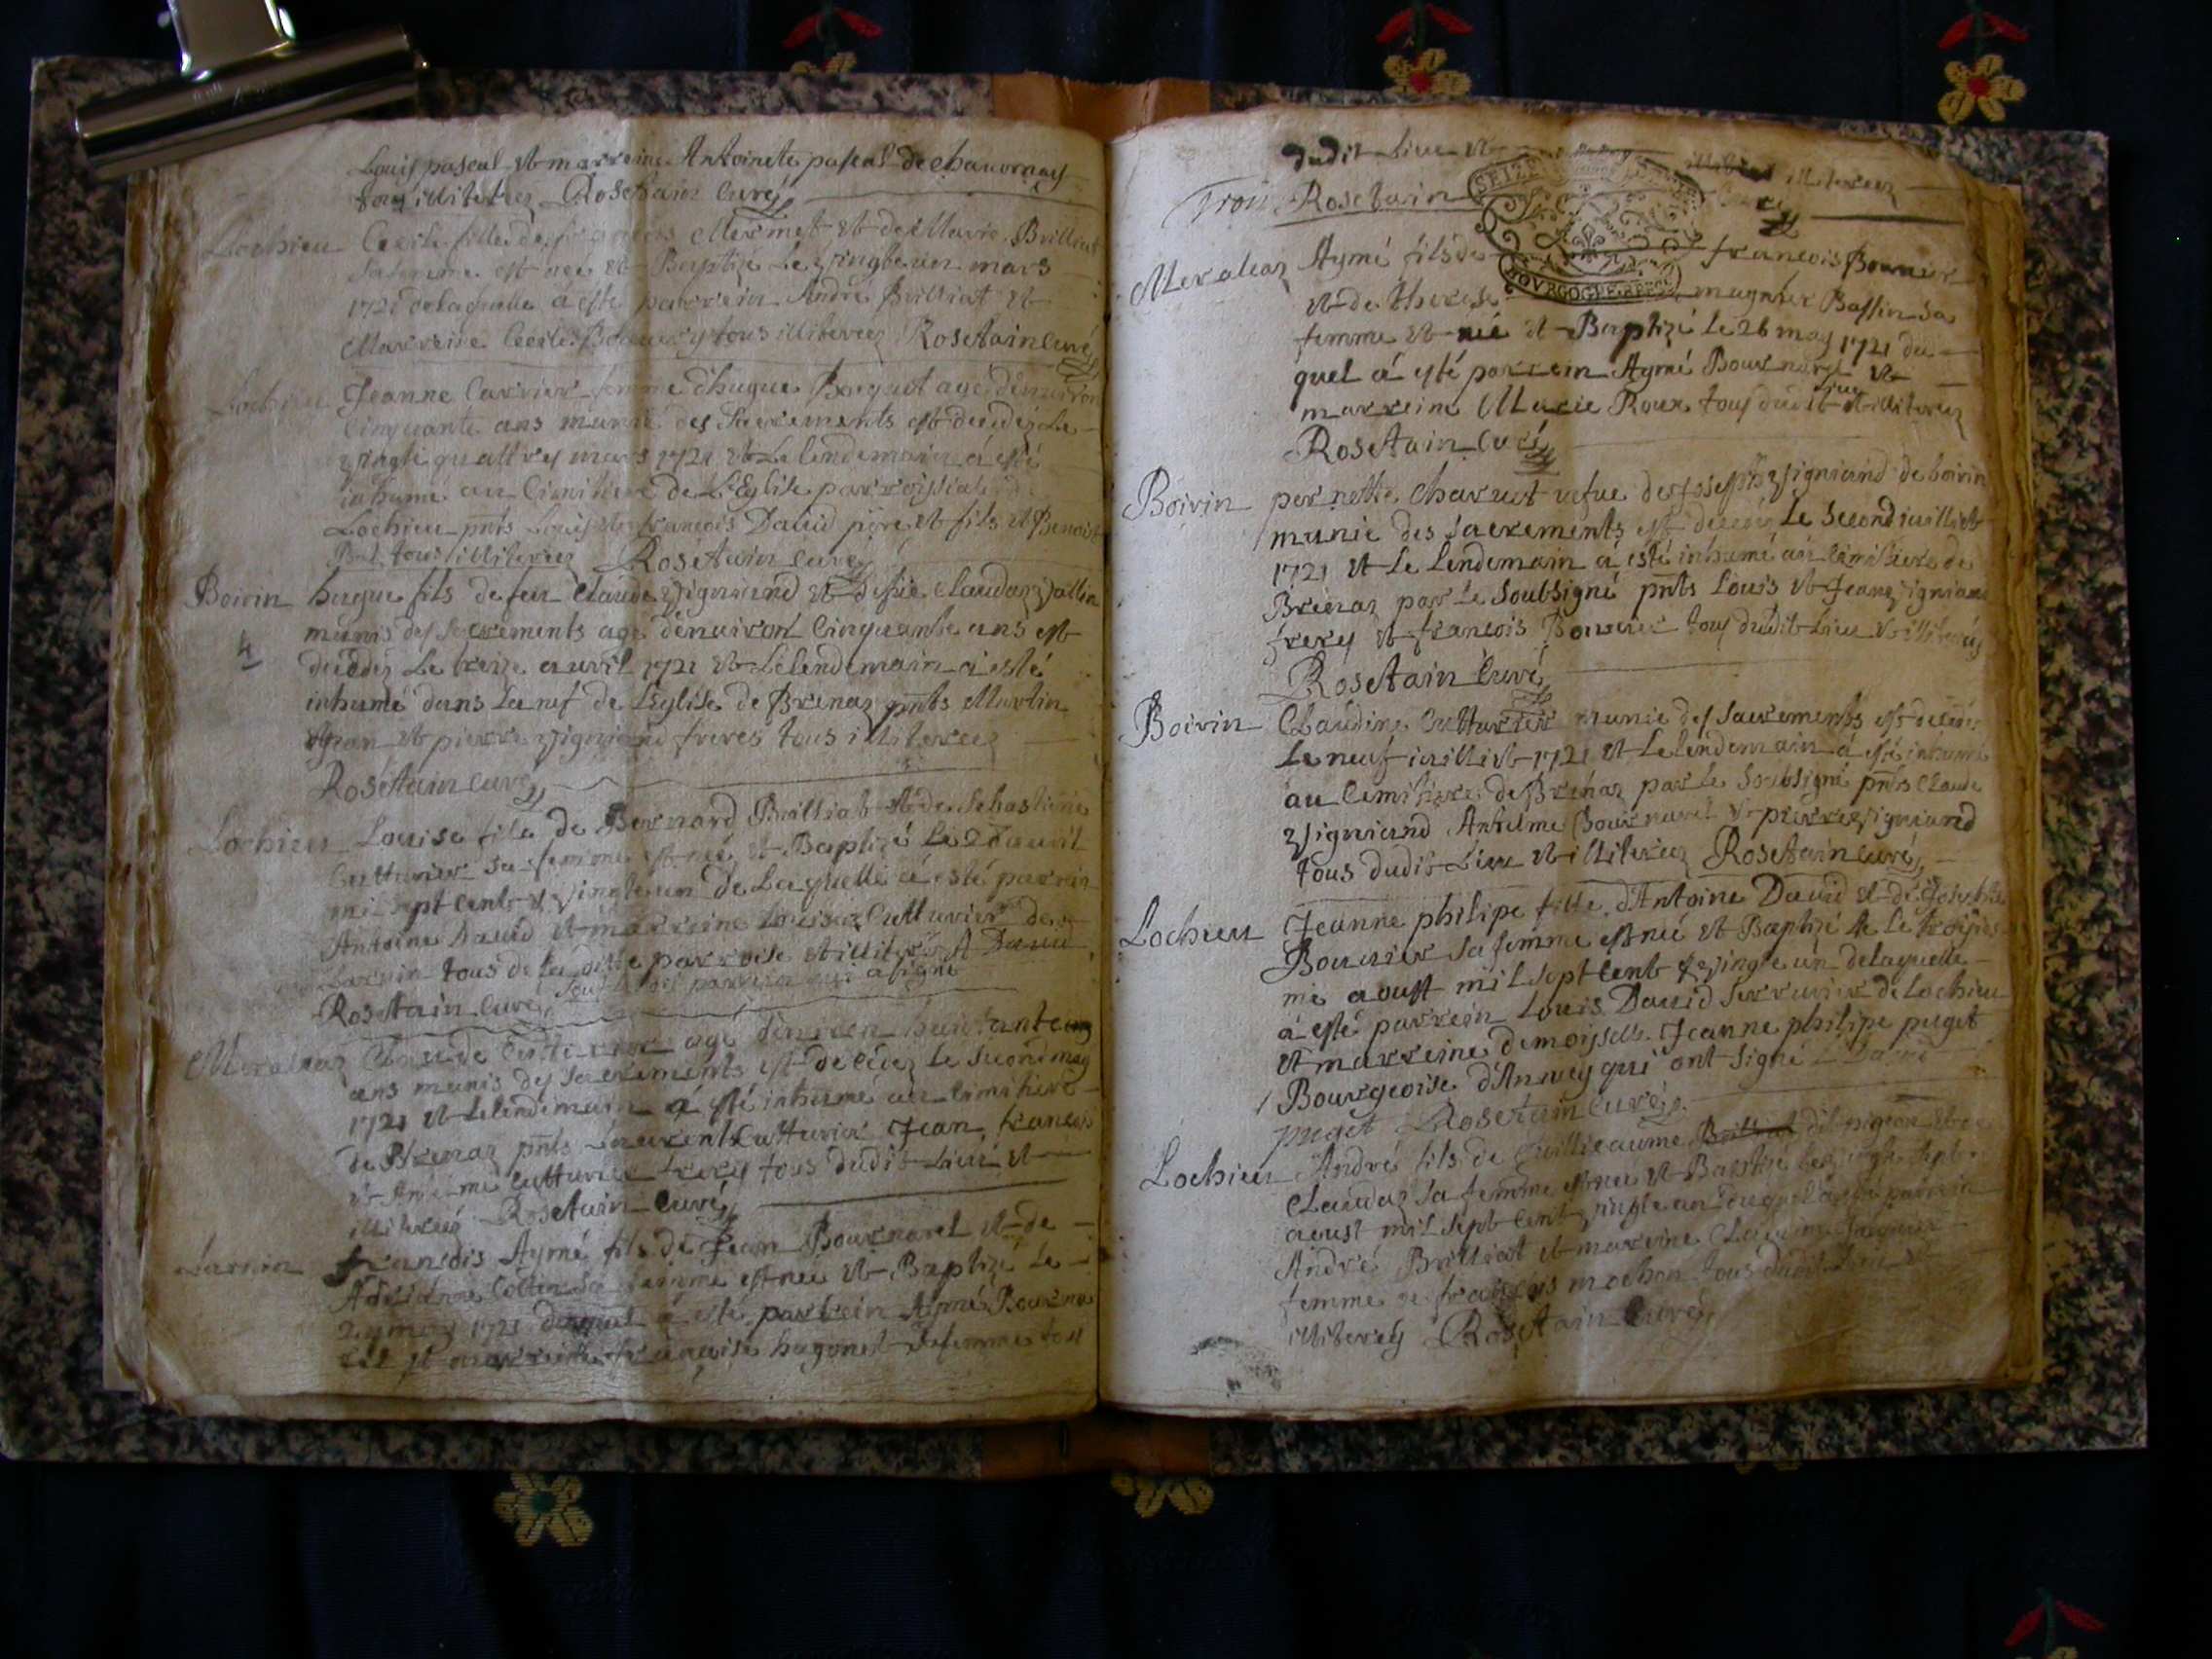 Louis pascal et marreine Antoinete pascal de chauornay
tous illiterez Rosetain curé
Lochieu Cecile fille de françois Mermet et de Marie Brilliat
sa femme est née et Baptizé le vingte un mars
1721 de laquelle à esté parrein André Brilliat et
Marreine Cecile tous illiterez Rosetain curé
Lochieu Jeanne Carrier femme d'hugue Borquet agé d'enuiron
Cinquante ans munie des Sacrements est decedéz Le
vingte quattrez mars 1721 et Le lendemain à esté
inhumé au Cimitiere de L'Eglise parroissiale de
Lochieu pnts Louis et francois Dauid pere et fils et Benoit
tous illiterez Rosetain curé
Boirin hugue fils de feu Claude Vigniand et de fue Claudaz Vallin
4
munis des Sacrements agé denuiron Cinquante ans est
decedez Le treize auvril 1721 et Le lendemain à esté
inhumé dans La nef de L'Eglise de Brenaz pnts Martin
Jean et pierre Vigniand freres tous illiterez
Rosetain curé
Lochieu Louise file de Bernard Brilliat et de Sebastiene
Cutturier sa femme est née et Baptizé le 26 auuril
mil sept cent et vingte un de Laquelle à esté parrein
Antoine Dauid et marreine Louise Cutturier de
Larnin tous de la ditte parroise et illiterez A Dauid
Rosetain curé sauf ledit parrein qui a signé
Meraleaz Claude Cutturier agé denuiron huictante cinq
ans munis des Sacrements est decédez Le second may
1721 et Le lendemain à esté inhumé au cimitiere
de Brenaz pnts Laurent Cutturier Jean, francois
et Antelme Cutturier freres tous dudit Lieu et
illiterez Rosetain curé
Larnin francois Aymé fils de Jean Bournarel et de
Adrianne Collin sa femme est née et Baptizé Le
may 1721 duquel à esté parrein Aymé Bourna
rel et marreine françoise hugonet sa femme tous
dudit Lieu et illiterez
Trois Rosetain
SEIZE
BOVRGOGNE BRESSE
Meraleaz Aymé fils de francois Bonnier
et de Therese magnin Bassin sa
femme et née et Baptizé le 26 may 1721 du
quel à esté parrein Aymé Bournarel et
marreine Marie Roux tous dudit Lieu et illiterez
Rosetain curé
Boirin pernette Charuet vefue de Joseph Vigniand de boirin
munie des Sacrements est decedéz Le Second iuilliet
1721 et Le Lendemain à esté inhumé au Cimitiere de
Brenaz par Le Soubsigné pnts Louis et Jean Vigniand
freres et francois Bonnier tous dudit Lieu et illiterez
Rosetain curé
Boirin Claudine Cutturier munie des Sacrements est decedéz
Le neuf iuilliet 1721 et Le lendemain à esté inhumé
au Cemitiere de Brenaz par Le Soubsigné pnts Claude
Vigniand Antelme Bournarel et pierre Vigniand
tous dudit Lieu et illiterez Rosetain curé
Lochieu Jeanne philipe fille d'Antoine Dauid et de Josephte
Bonnier Sa femme est née et Baptizé le troisies
me aoust mil sept cent et vingte un de laquelle
à esté parrein Louis Dauid Serrurier de Lochieu
et marreine demoiselle Jeanne philipe puget
Bourgeoise d'Annecy qui ont signé L Dauid
puget Rosetain curé
Lochieu André fils de Guillieaume Brilliat dit pigeon et de
Claudaz Sa femme est née et Baptizé Le vingte sept
aoust mil sept cent vingte un duquel à esté parrein
André Brilliat et marreine Claudine
femme de francois mochon tous dudit Lieu et
illiterez Rosetain curé